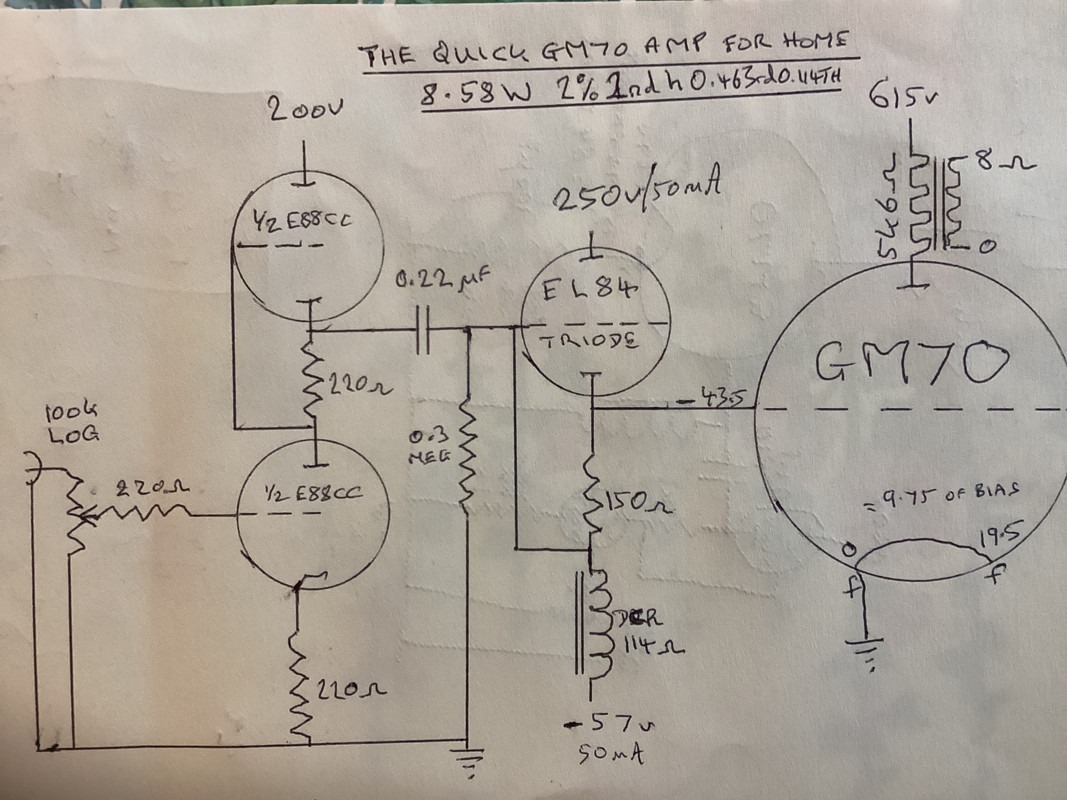 THE QUICK GM70 AMP FOR HOME
8.58W 2% 2nd h 0.463rd 0.114TH
200V
615v
8Ω
5K6Ω
0
250v/50mA
1/2 E88CC
0.22µF
EL84
TRIODE
GM70
220Ω
-43.5
100k
LOG
0.3
MEG
220Ω
1/2 E88CC
150Ω
= 9.75 OF BIAS
0
19.5
f
f
DCR
114Ω
220Ω
-57v
50mA